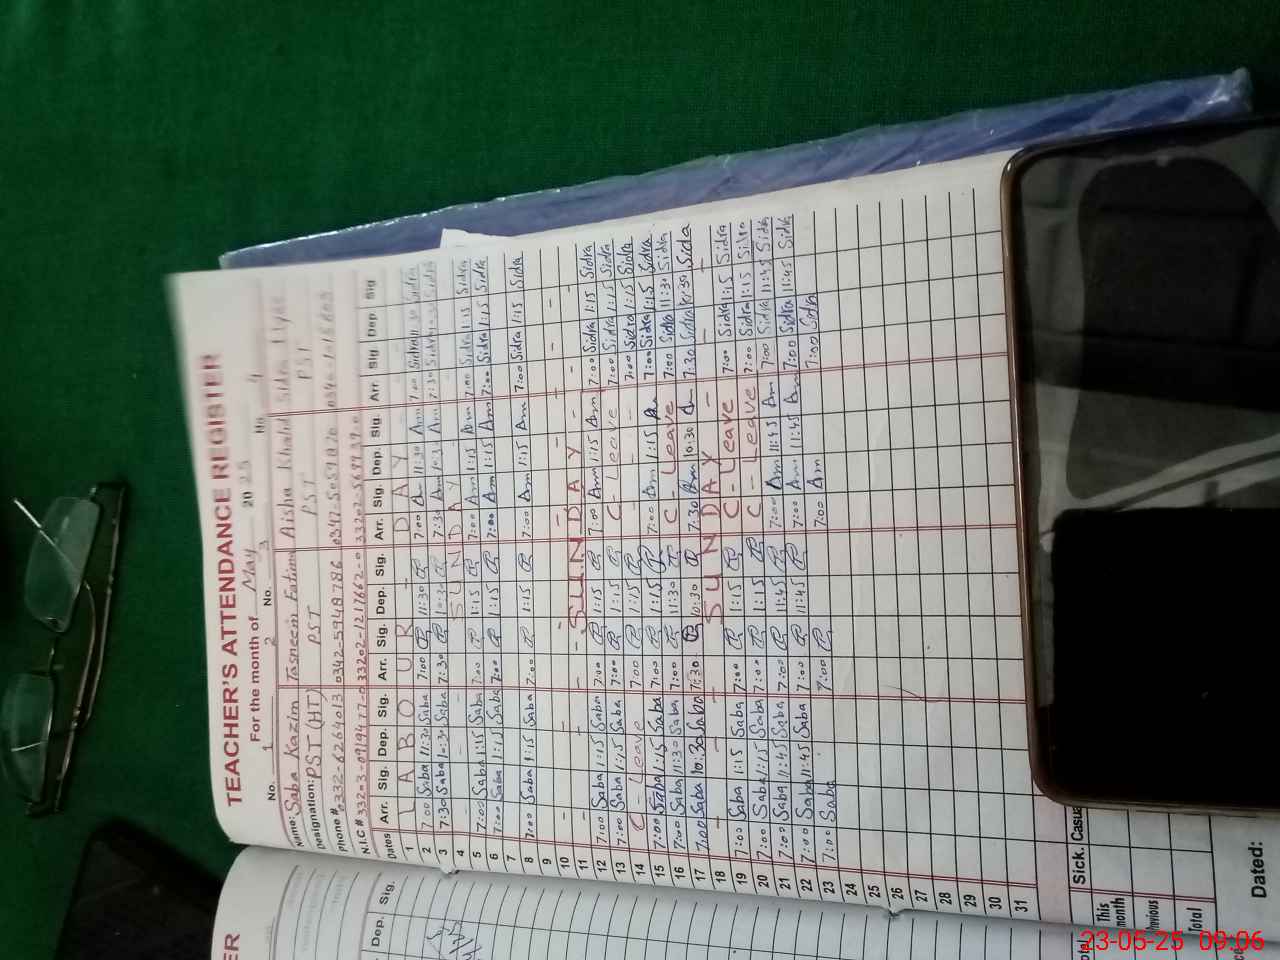 TEACHER'S ATTENDANCE REGISTER
For the month of May 2025
No. 1 No. 2 No. 3 No. 4
Name: Saba Kazim Tasneem Fatima Aisha Khalid Sidra
Designation: PST (HT) PST PST PST
Phone # 0332-6264013
N.I.C #
Dates Arr. Sig. Dep. Sig. Arr. Sig. Dep. Sig. Arr. Sig. Dep. Sig. Arr. Sig Dep. Sig
1 L A B O U R - D A Y
2 7:00 Saba 11:30 Saba 7:00 11:30 7:00 Am 11:30 Am 7:00 Sidra 11:30 Sidra
3 7:30 Saba 10:30 Saba 7:30 10:30 7:30 Am 10:30 Am 7:30 Sidra 10:30 Sidra
4 - - S U N D A Y -
5 7:00 Saba 1:15 Saba 7:00 1:15 7:00 Am 1:15 Am 7:00 Sidra 1:15 Sidra
6 7:00 Saba 1:15 Saba 7:00 1:15 7:00 Am 1:15 Am 7:00 Sidra 1:15 Sidra
7
8 7:00 Saba 1:15 Saba 7:00 1:15 7:00 Am 1:15 Am 7:00 Sidra 1:15 Sidra
9
10 - -
11 - - S U N D A Y - -
12 7:00 Saba 1:15 Saba 7:00 1:15 7:00 Am 1:15 Am 7:00 Sidra 1:15 Sidra
13 7:00 Saba 1:15 Saba 7:00 1:15 C - Leave 7:00 Sidra 1:15 Sidra
14 C - Leave 7:00 1:15 7:00 Sidra 1:15 Sidra
15 7:00 Saba 1:15 Saba 7:00 1:15 7:00 Am 1:15 Am 7:00 Sidra 1:15 Sidra
16 7:00 Saba 11:30 Saba 7:00 11:30 C - Leave 7:00 Sidra 11:30 Sidra
17 7:00 Saba 10:30 Saba 7:30 10:30 7:30 Am 10:30 7:30 Sidra 10:30 Sidra
18 - - S U N D A Y - - -
19 7:00 Saba 1:15 Saba 7:00 1:15 C - Leave 7:00 Sidra 1:15 Sidra
20 7:00 Saba 1:15 Saba 7:00 1:15 C - Leave 7:00 Sidra 1:15 Sidra
21 7:00 Saba 11:45 Saba 7:00 11:45 7:00 Am 11:45 Am 7:00 Sidra 11:45 Sidra
22 7:00 Saba 11:45 Saba 7:00 11:45 7:00 Am 11:45 Am 7:00 Sidra 11:45 Sidra
23 7:00 Saba 7:00 7:00 Am 7:00 Sidra
24
25
26
27
28
29
30
31
Sick. Casua
This month
Previous
Total
Dated:
ER
Dep. Sig.
23-05-25 09:06